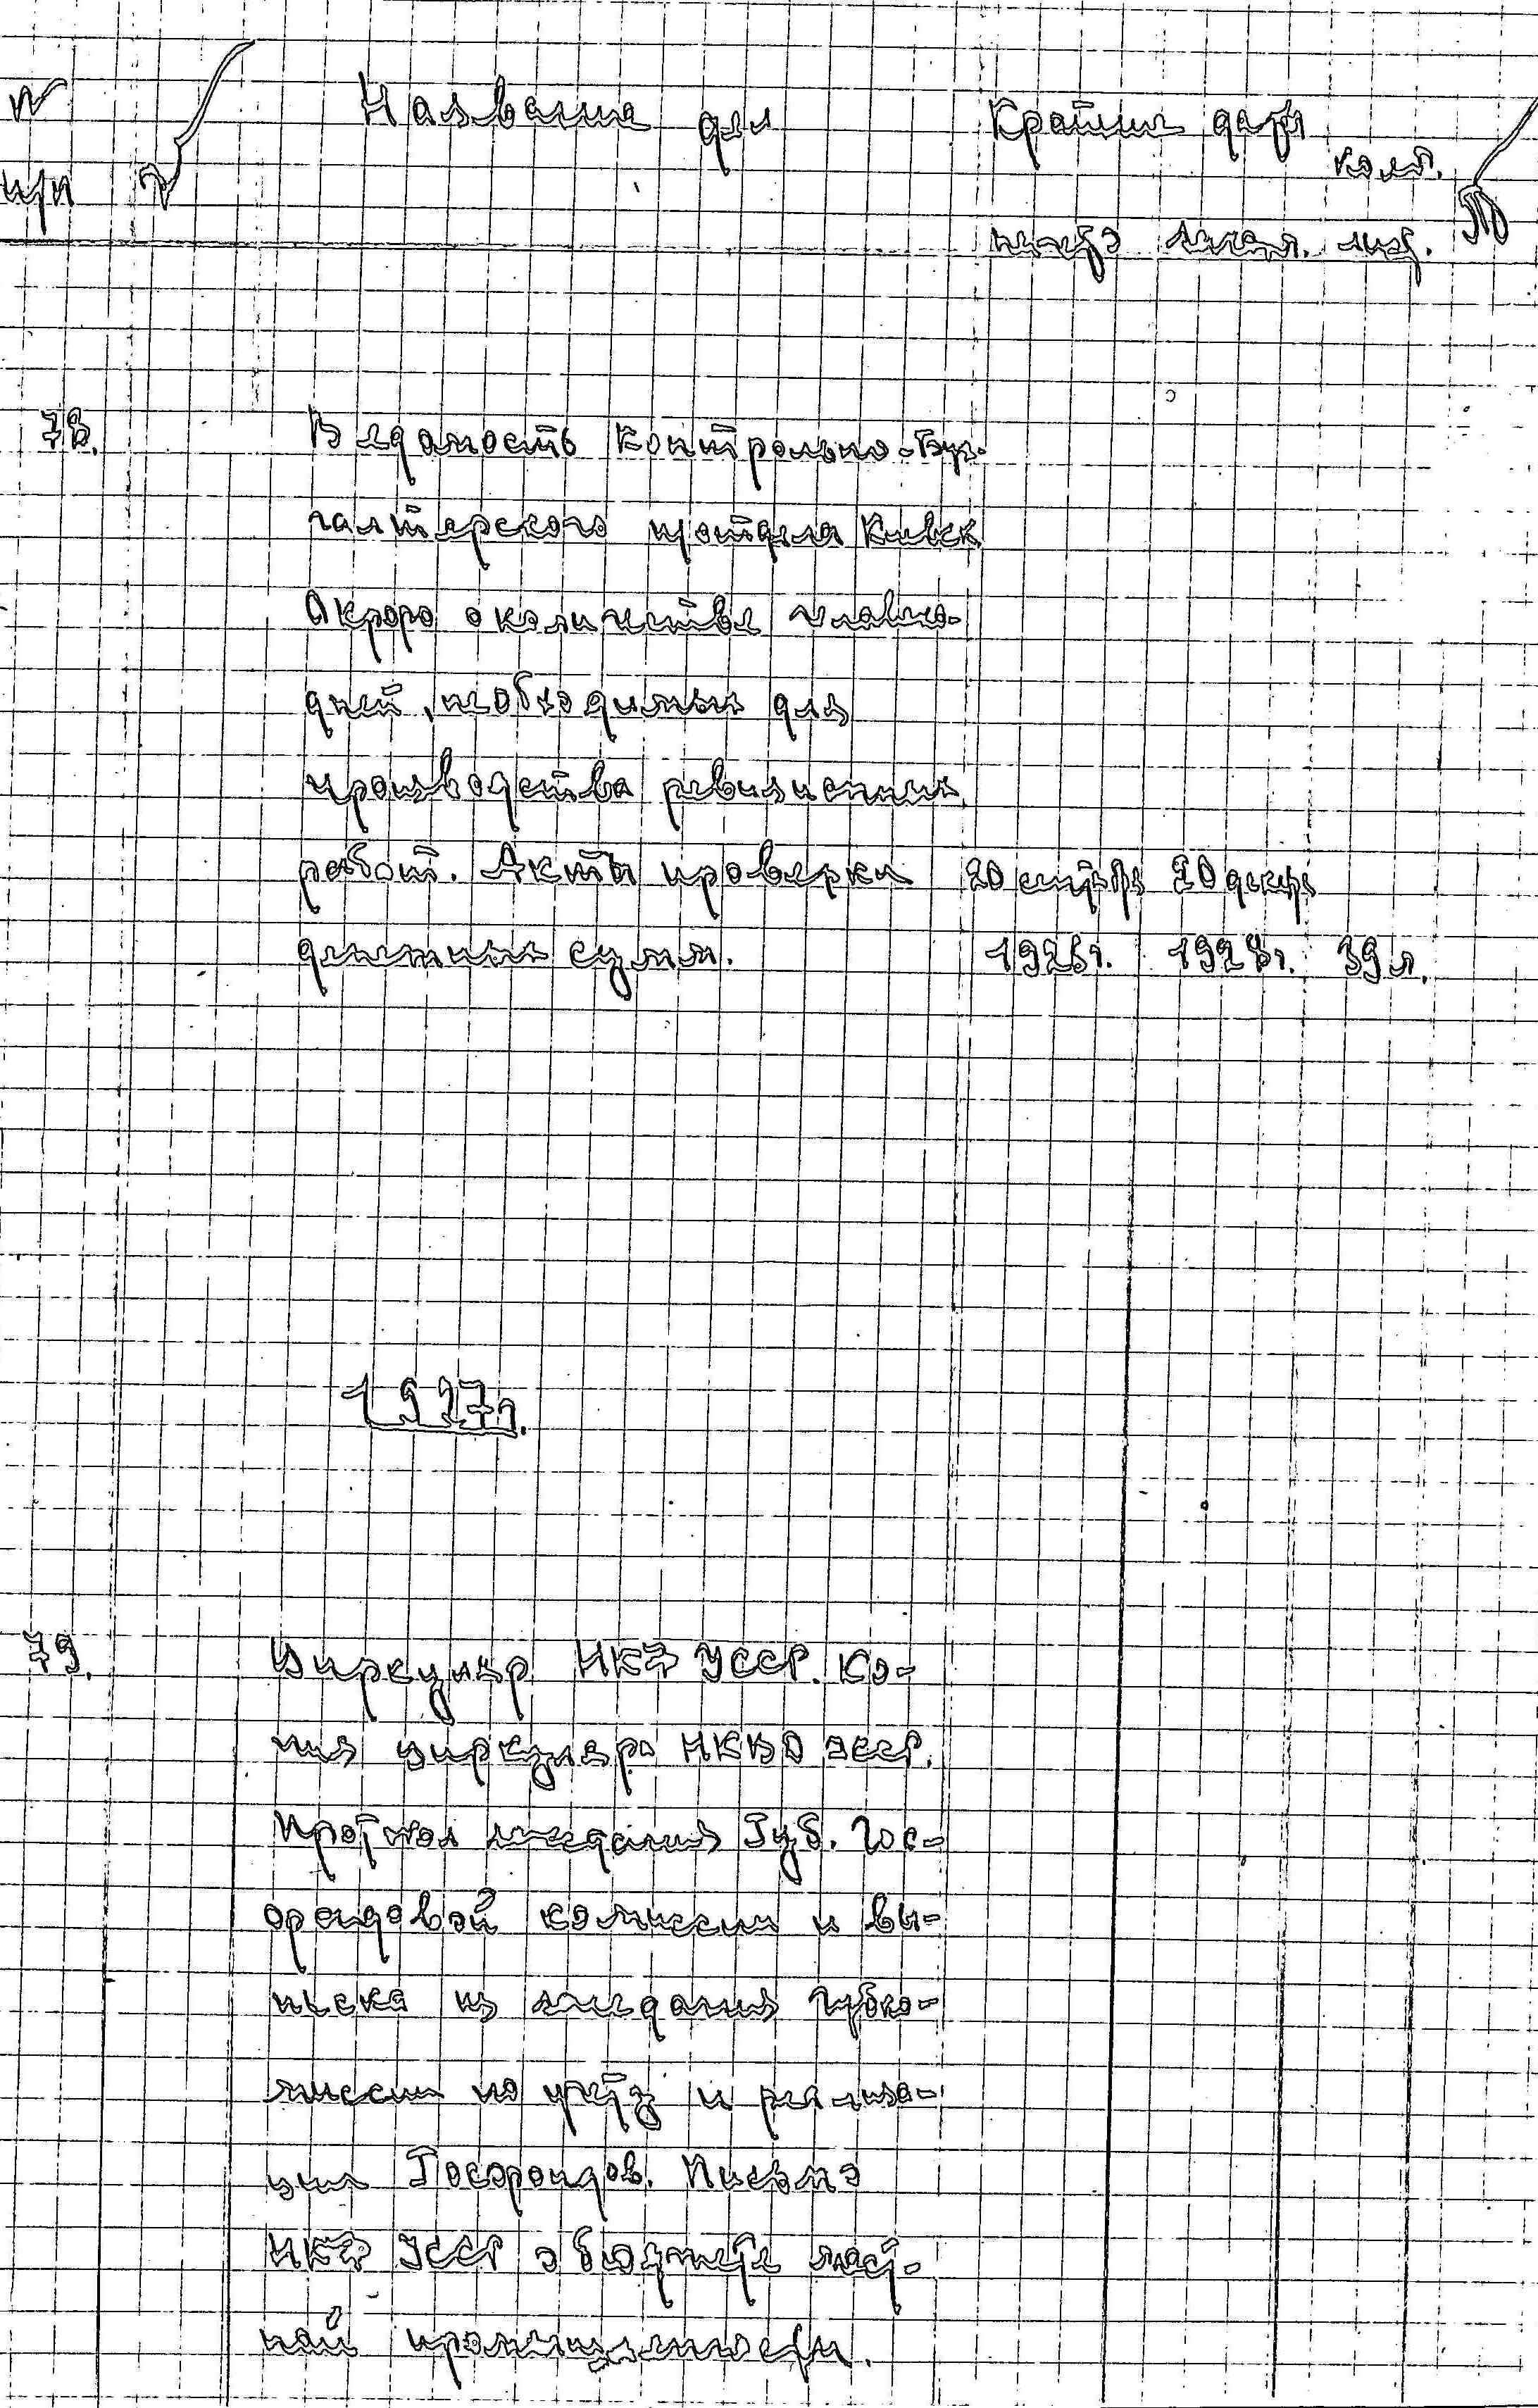 № Название дел Крайние даты
п/п колич.
начало оконч. лист.
78. Ведомость Контрольно-Бух-
галтерского п/отдела Киевск.
Окрфо о количестве человеко-
дней, необходимых для
производства ревизионных
работ. Акты проверки 20 октября 20 декабря
денежных сумм. 1928г. 39 л.
1927г.
79. Циркуляр НКФ УССР. Ко-
пия циркуляра НКВД УССР.
Протокол заседания Губ. Гос-
фондовой комиссии и вы-
писка из заседания Губко-
миссии по учёту и реализа-
ции Госфондов. Письмо
НКФ УССР о бюджете мест-
ной промышленности.